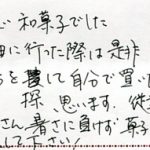 和菓子でした
に行った際は是非
を獲して自分で置い
探 思います.
さん暑さに負けず菓子
して下さい